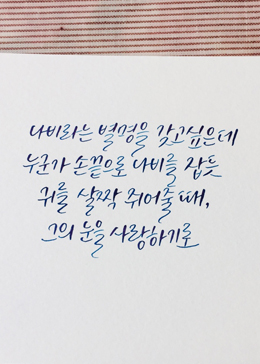 나비라는 별명을 갖고싶은데
누군가 손끝으로 나비를 잡듯
귀를 살짝 쥐어줄 때,
그의 눈을 사랑하기로